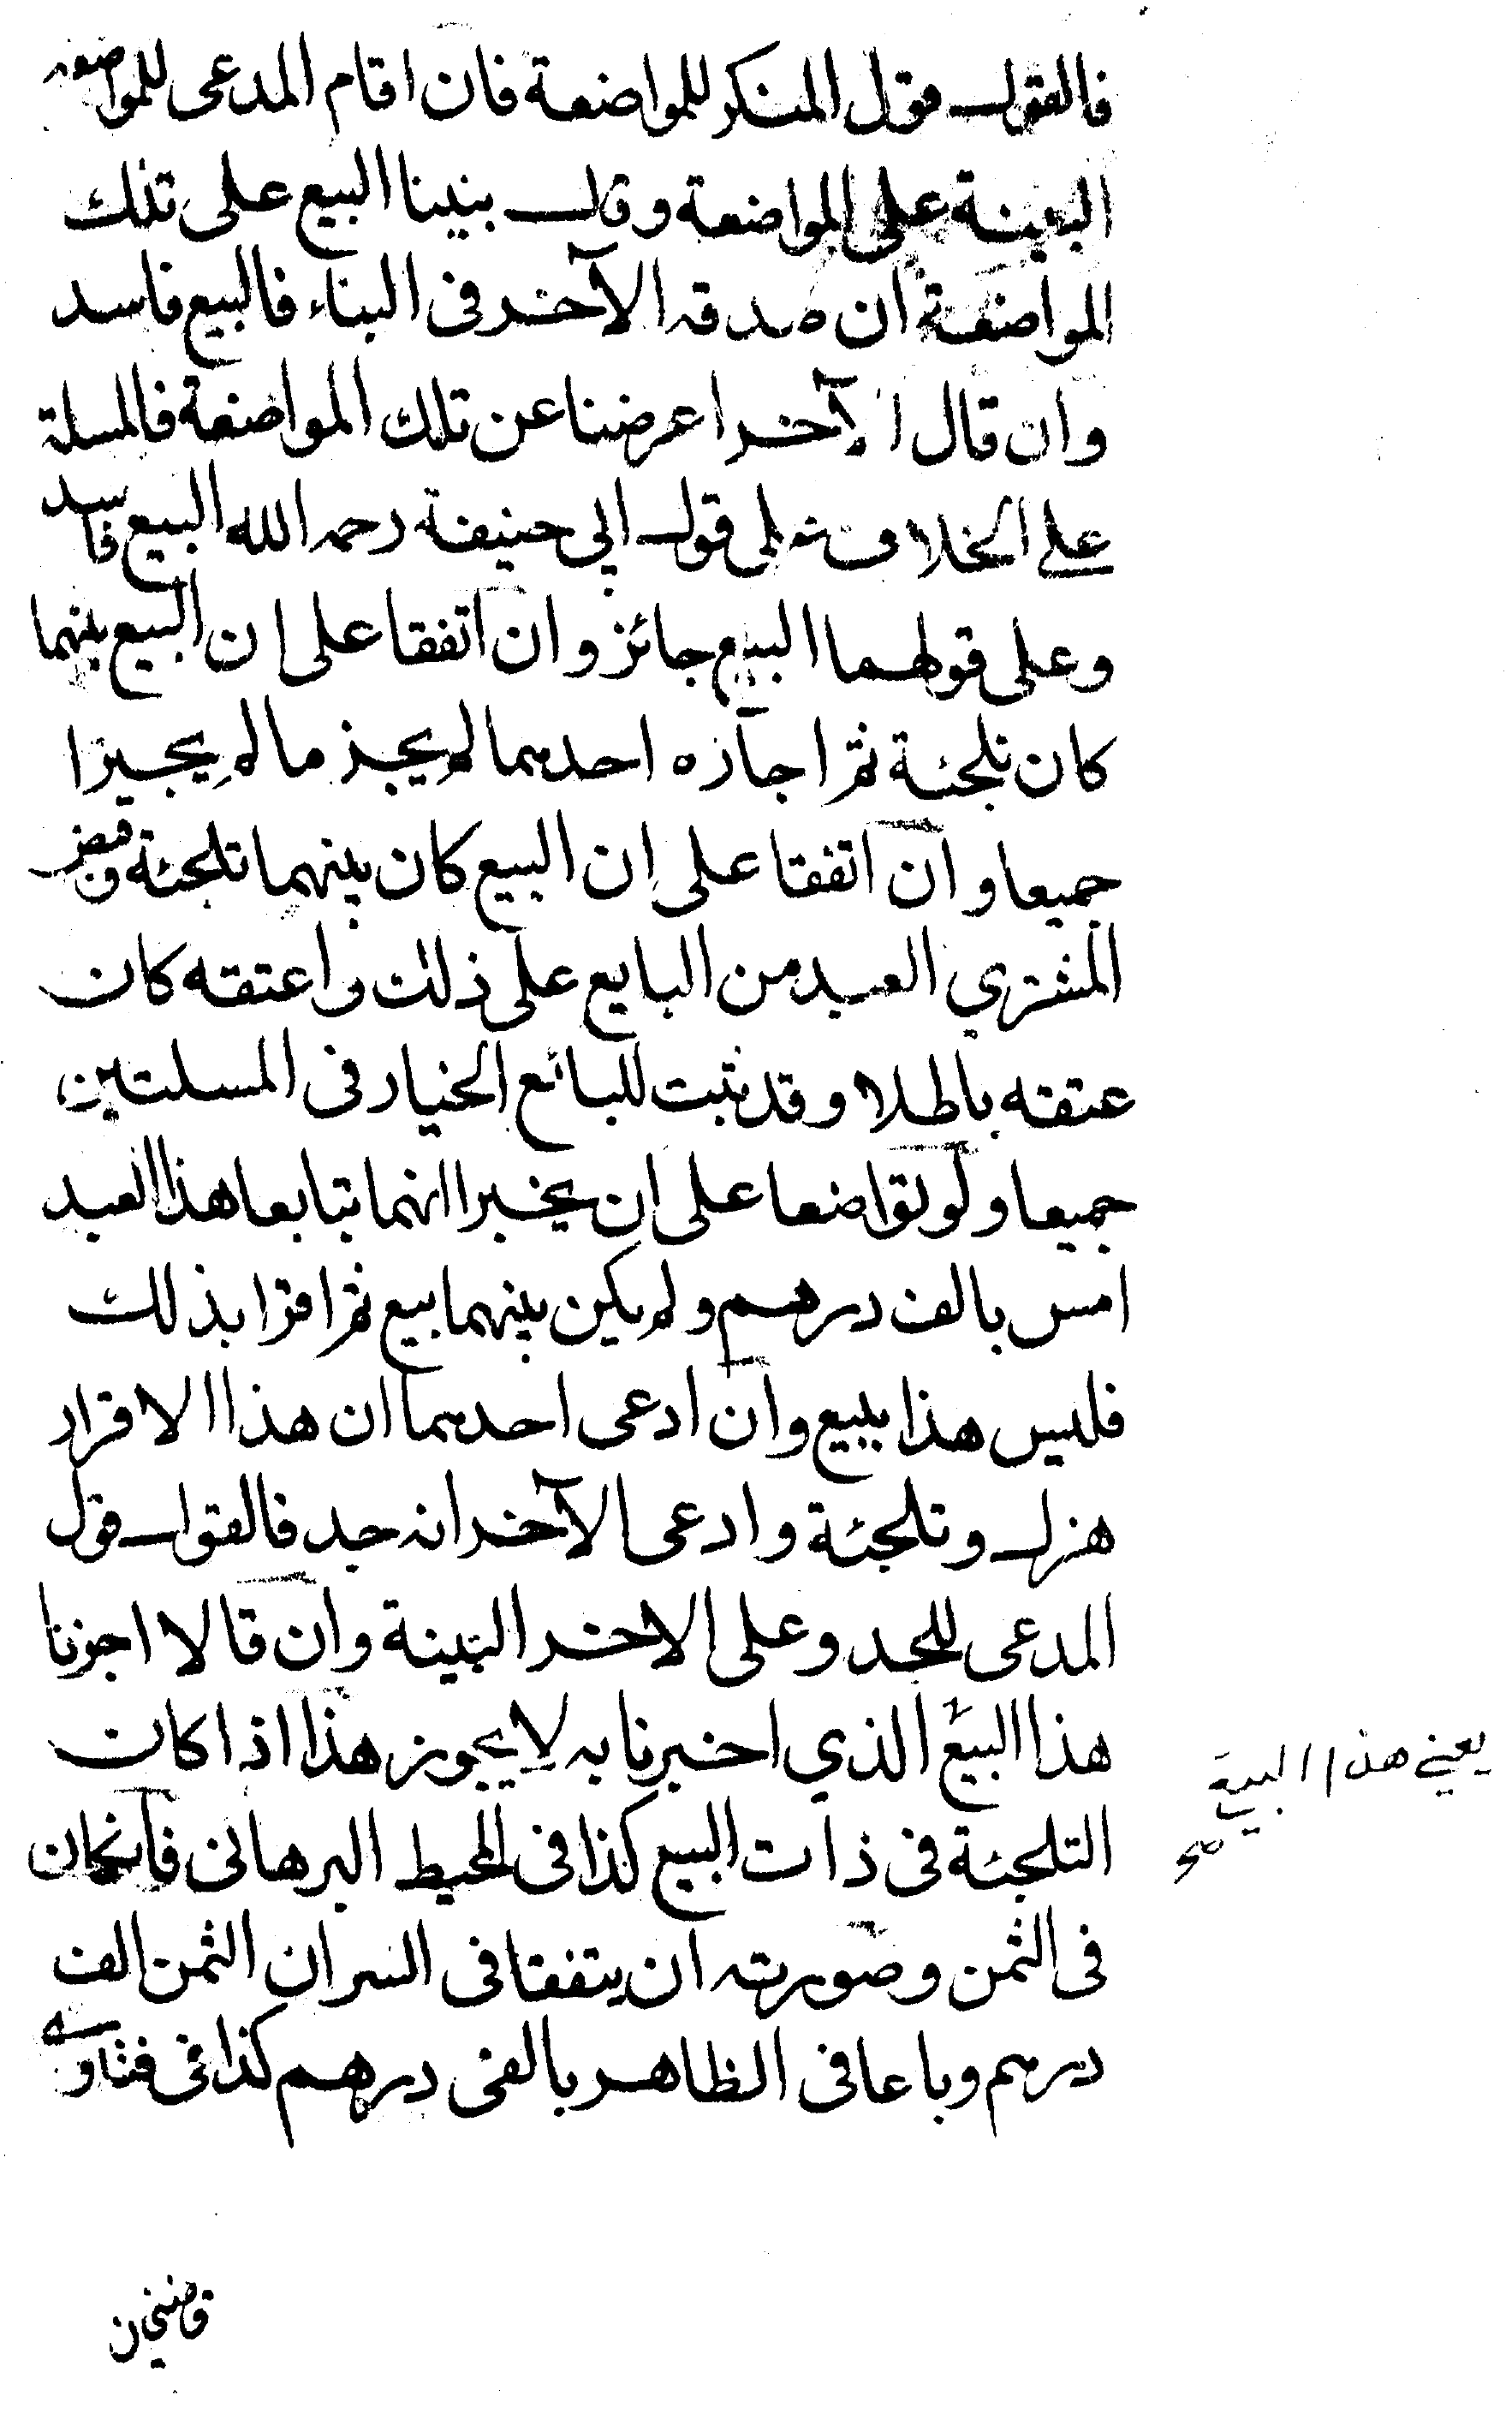 فالقول قول المنكر للمواضعة فان اقام المدعى للمواضعة
البينة على المواضعة وقال بنينا البيع على تلك
المواضعة ان صدقه الآخر في البناء فالبيع فاسد
وان قال الآخر اعرضنا عن تلك المواضعة فالمسلة
على الخلاف على قول ابي حنيفة رحمه الله البيع فاسد
وعلى قولهما البيع جائز وان اتفقا على ان البيع بينهما
كان تلجئة ثم اجازه احدهما لم يجز ما لم يجيزا
جميعا وان اتفقا على ان البيع كان بينهما تلجئة وقبض
المشتري العبد من البايع على ذلك واعتقه كان
عتقه باطلا وقد ثبت للبائع الخيار في المسلتين
جميعا ولو تواضعا على ان يخبرا انهما تبايعا هذا العبد
امس بالف درهم ولم يكن بينهما بيع ثم اقرا بذلك
فليس هذا ببيع وان ادعى احدهما ان هذا الاقرار
هزل وتلجئة وادعى الآخر انه جد فالقول قول
المدعى للجد وعلى الاخر البينة وان قالا اجزنا
هذا البيع الذي اخبرنا به لا يجوز هذا اذا كان
يعني هذا البيع
صح
التلجئة في ذات البيع كذا في المحيط البرهانى فانكان
في الثمن وصورته ان يتفقا في السر ان الثمن الف
درهم وباعا في الظاهر بالفى درهم كذا في فتاوى
قاضيخان